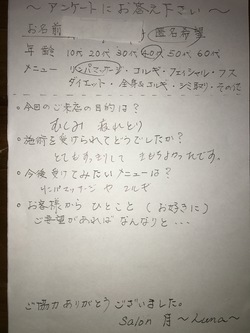 ～アンケートにお答え下さい～
お名前 匿名希望
年齢 10代 20代 30代 40代 50代 60代
メニュー リンパマッサージ・コルギ・フェイシャル・フス
ダイエット・全身&コルギ・シミ取り・その他
○今回のご来店の目的は？
むくみ 疲れとり
○施術を受けられてどうでしたか？
とてもすっきりして きもちよかったです。
○今後受けてみたいメニューは？
リンパマッサージ や コルギ
○お客様から ひとこと（お好きに）
ご要望があれば なんなりと・・・
ご協力ありがとうございました。
Salon 月 ～Luna～